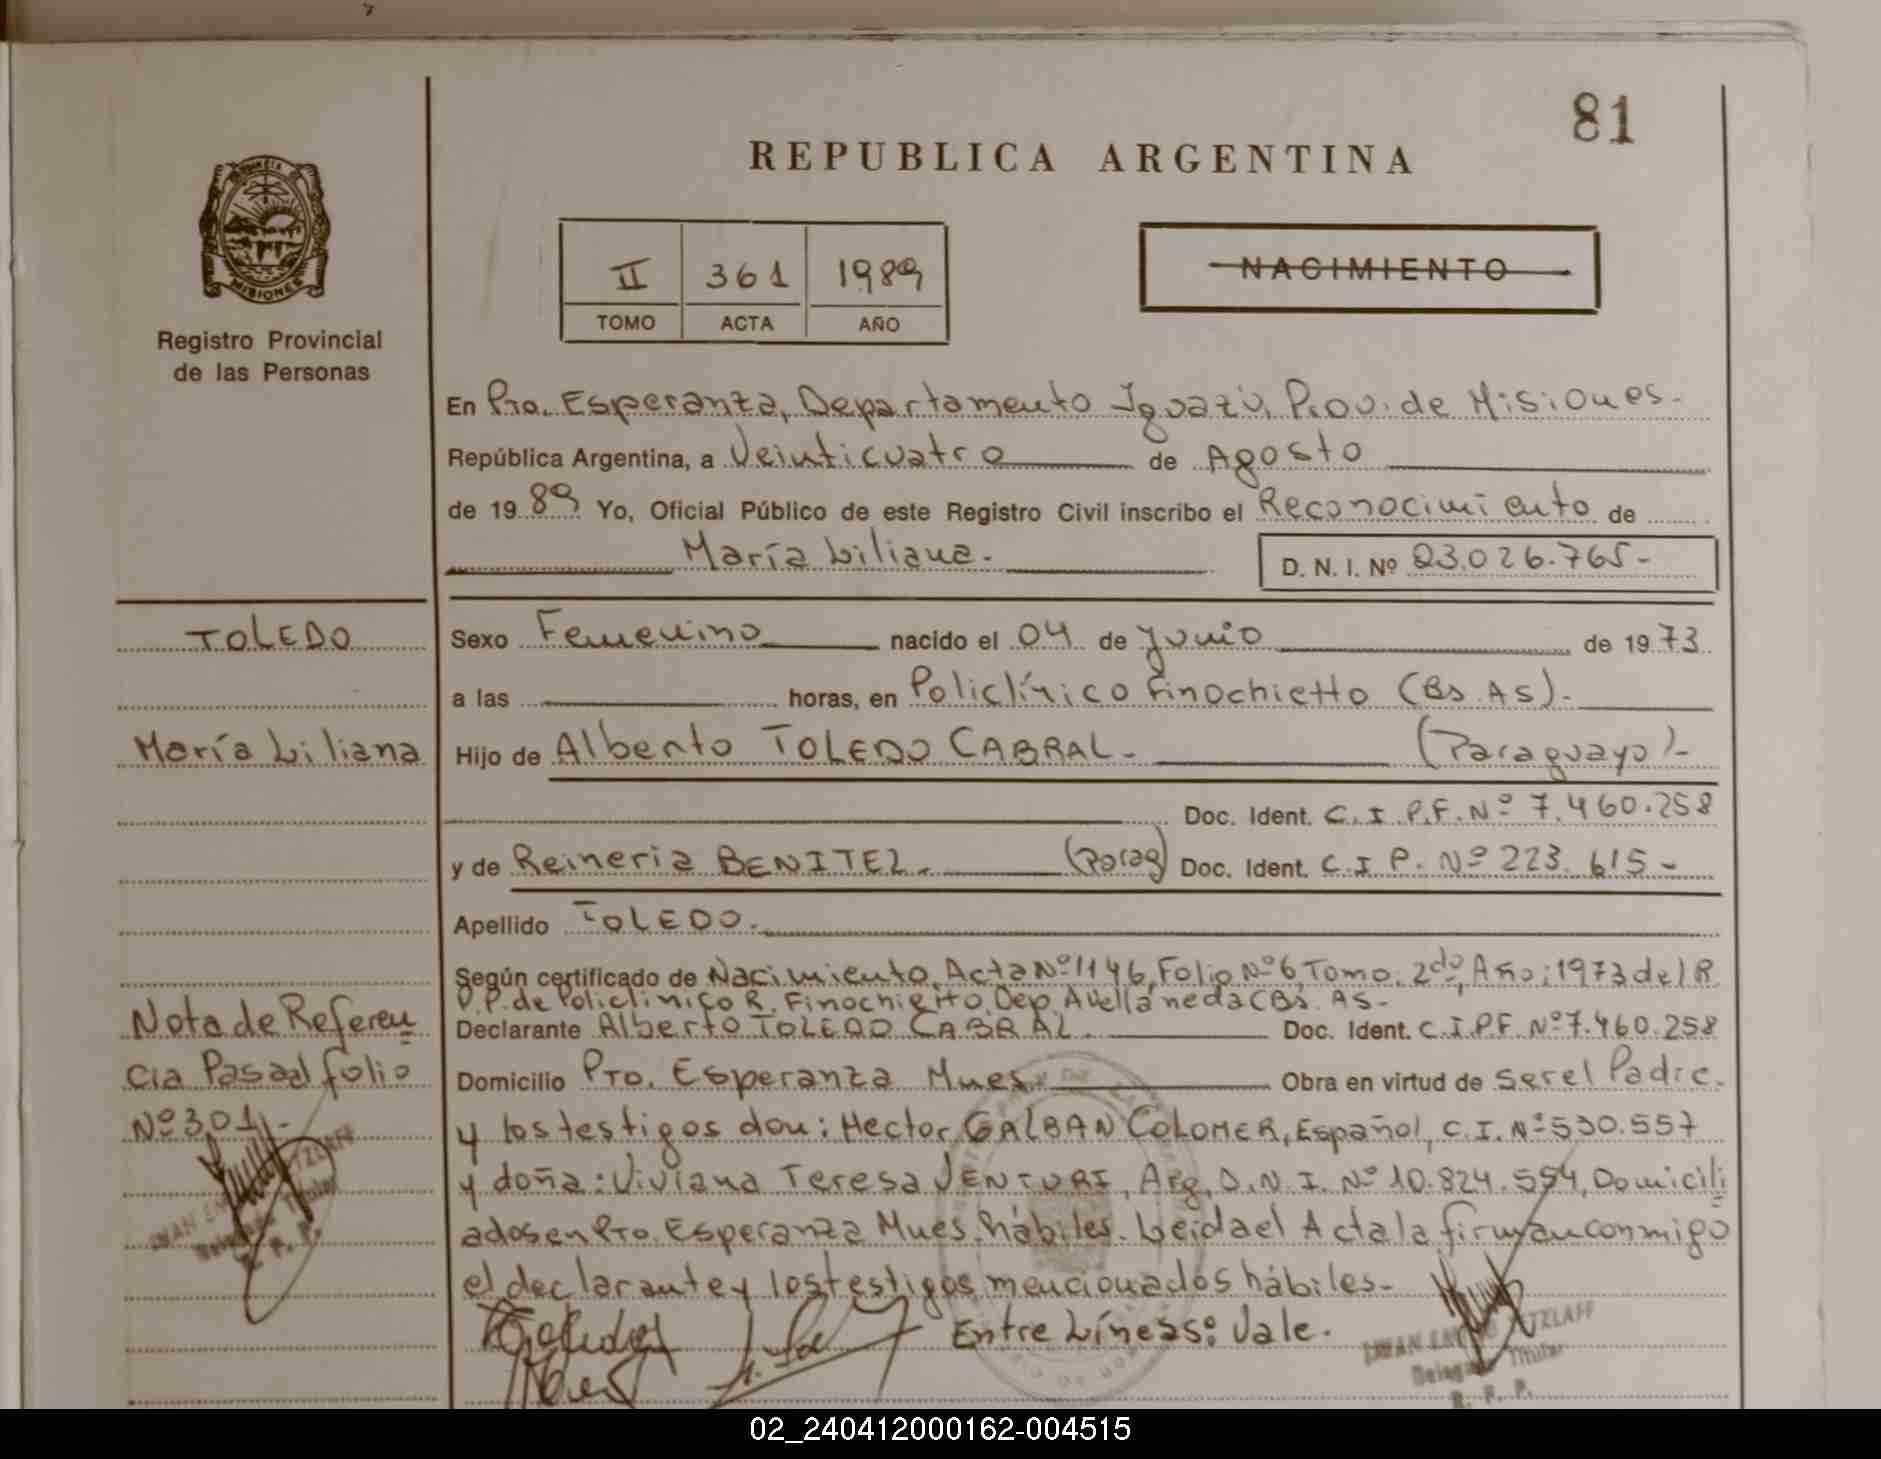 81
REPUBLICA ARGENTINA
MISIONES
Registro Provincial
de las Personas
II 361 1989
TOMO ACTA AÑO
NACIMIENTO
En Pto. Esperanza, Departamento Iguazú, Prov. de Misiones.
República Argentina, a Veinticuatro de Agosto
de 1989 Yo, Oficial Público de este Registro Civil inscribo el Reconocimiento de
María Liliana.
D. N. I. Nº 23.026.765-
TOLEDO
María Liliana
Sexo Femenino nacido el 04 de Junio de 1973
a las horas, en Policlínico Finochietto (Bs. As).
Hijo de Alberto TOLEDO CABRAL- (Paraguayo)-
Doc. Ident. C. I. P.F. Nº 7.460.258
y de Reineria BENITEZ. (Parag) Doc. Ident. C.I P. Nº 223.615-
Apellido TOLEDO.
Según certificado de Nacimiento, Acta Nº 1146, Folio Nº 6, Tomo: 2do, Año: 1973 del R.
D.P. de Policlínico R. Finochietto, Dep. Avellaneda (Bs. As-
Declarante Alberto TOLEDO CABRAL. Doc. Ident. C.I.P.F. Nº 7.460.258
Domicilio Pto. Esperanza Mnes. Obra en virtud de ser el Padre.
y los testigos don: Hector GALBAN COLOMER, Español, C.I. Nº 530.557
y doña: Viviana Teresa VENTURI, Arg. D.N.I. Nº 10.824.554, Domicili
ados en Pto. Esperanza Mnes. hábiles. Leida el Acta la firman conmigo
el declarante y los testigos mencionados hábiles-
Entre Líneas: Vale.
Nota de Referen
cia Pasa al folio
Nº 301.-
Titular
R. P. P.
Titular
R. P. P.
02_240412000162-004515